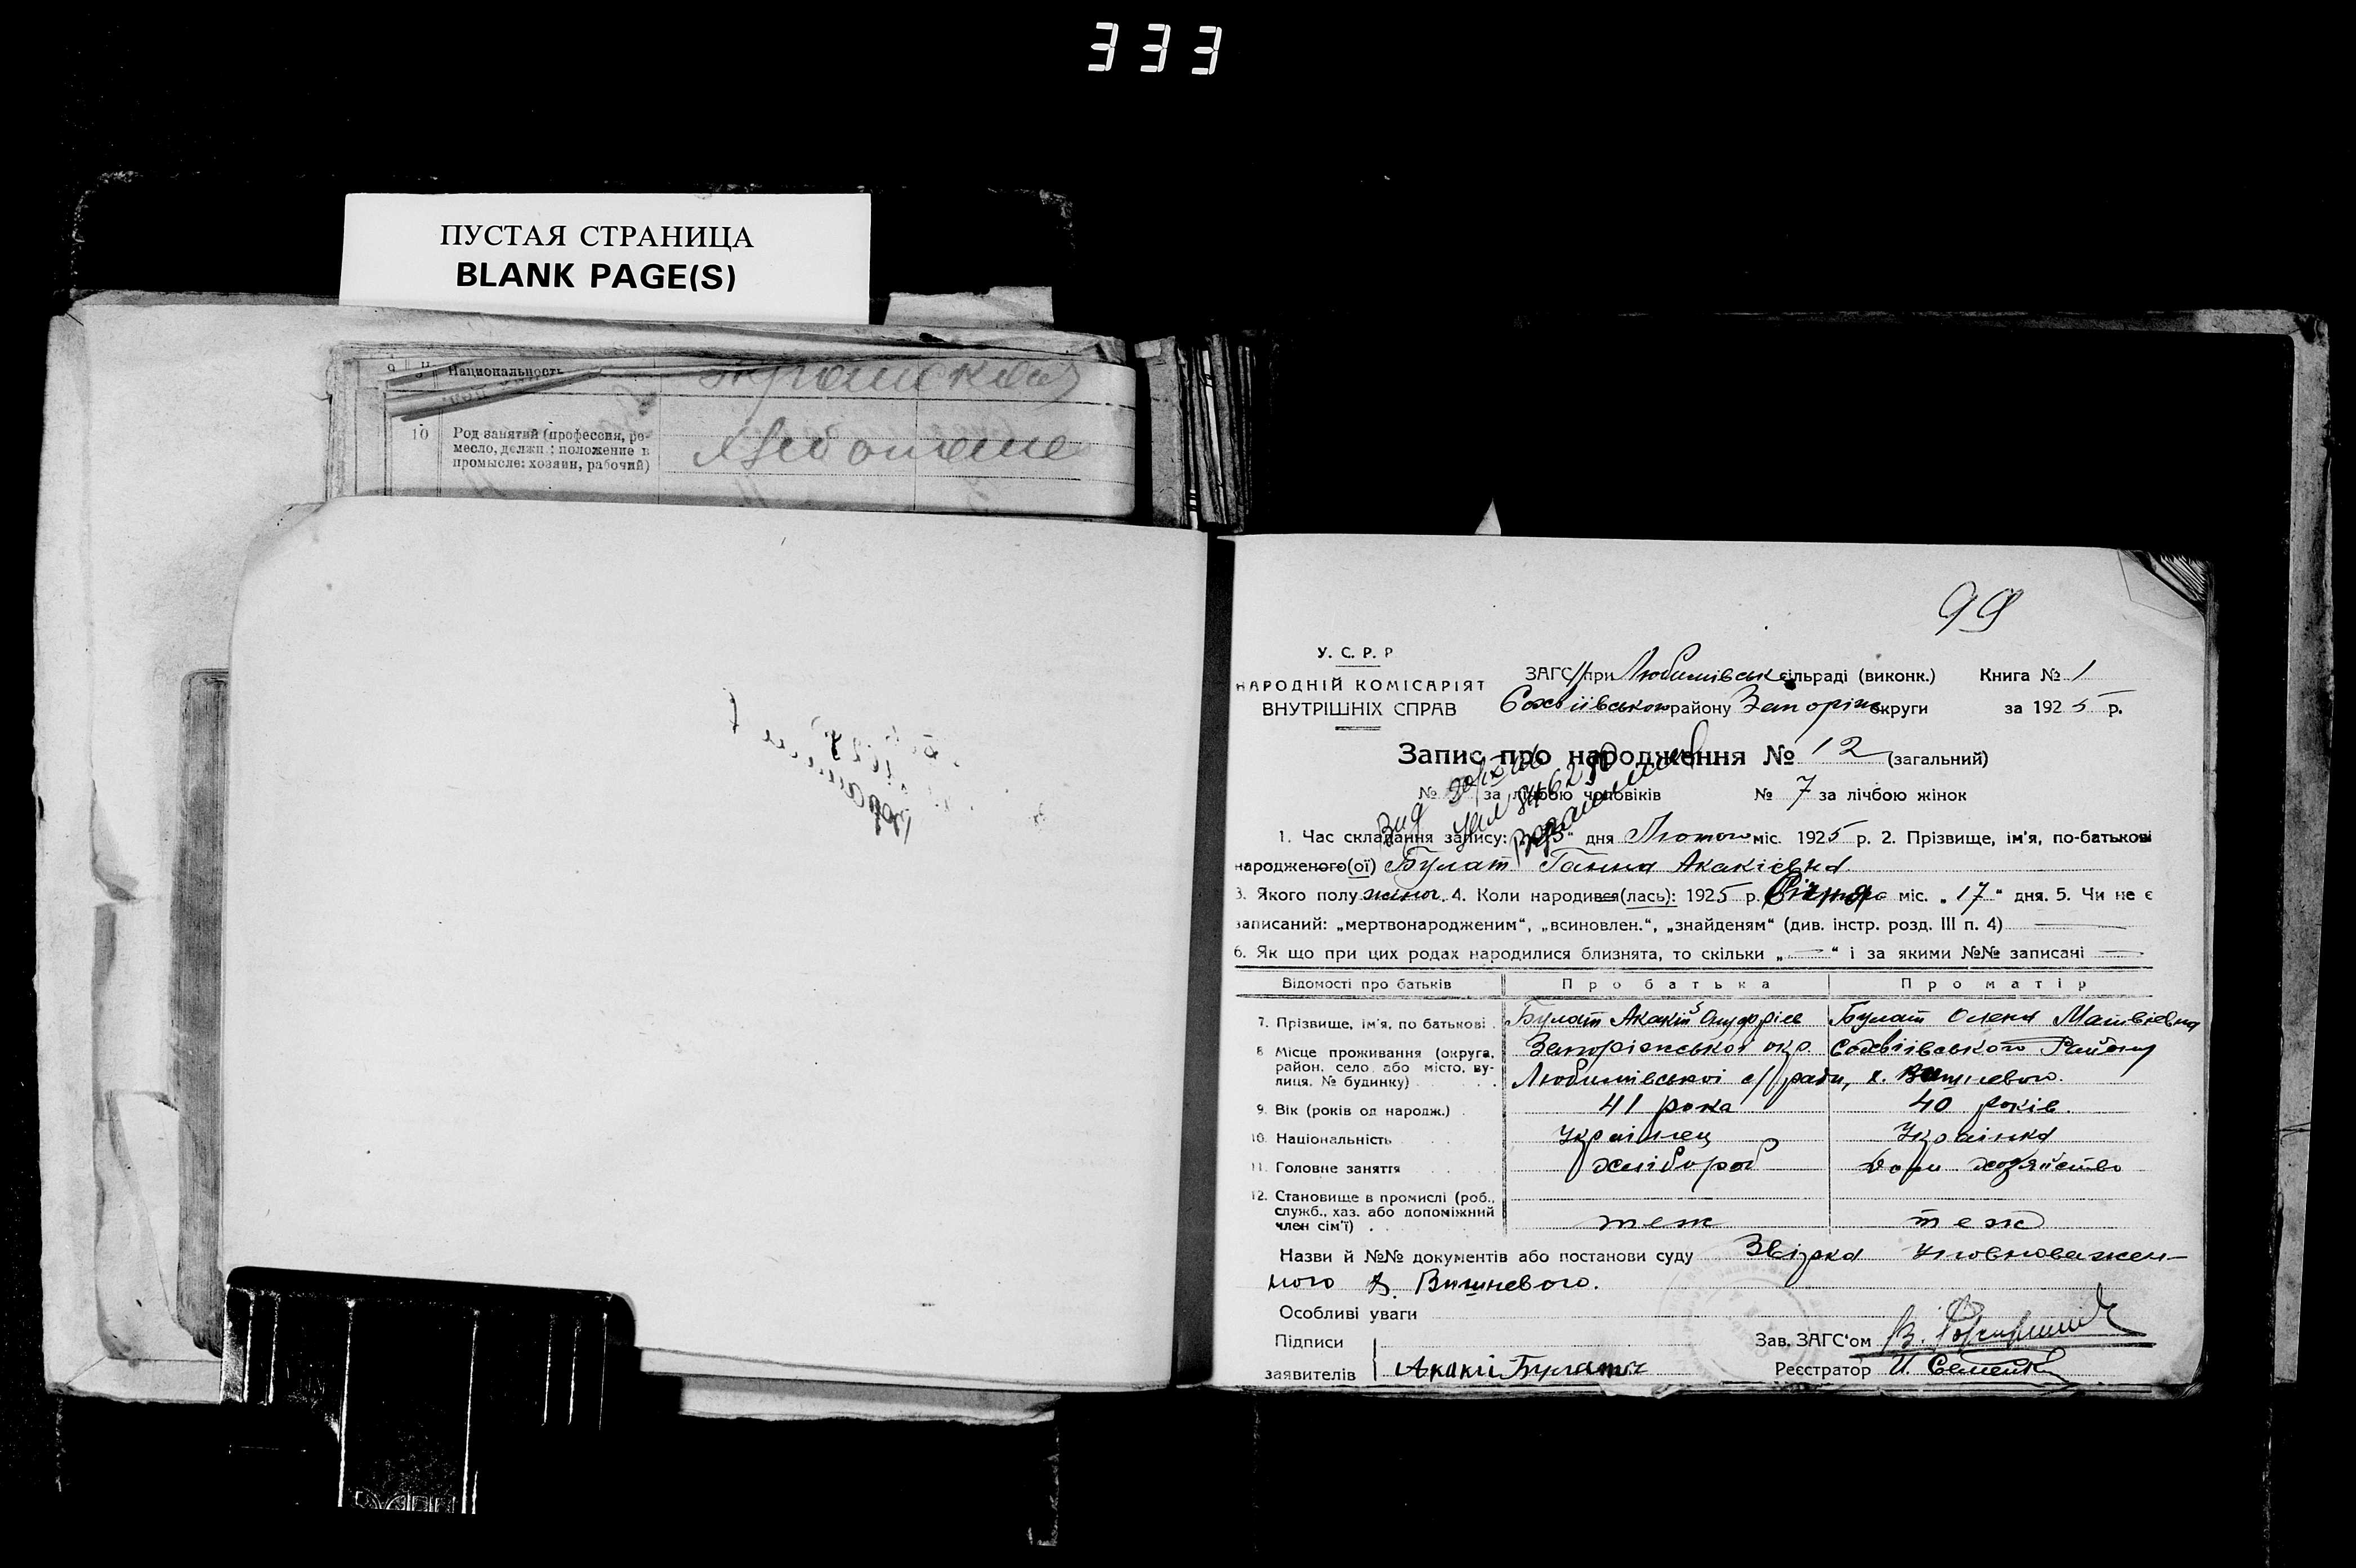 333
ПУСТАЯ СТРАНИЦА
BLANK PAGE(S)
9 Национальность
10 Род занятий (профессия, ре-
месло, должн.; положение в
промысле: хозяин, рабочий)
99
У. С. Р. Р
НАРОДНІЙ КОМІСАРІЯТ
ВНУТРІШНІХ СПРАВ
ЗАГС при Любимівськ сільраді (виконк.) Книга № 1
Софіївського району Запоріж округи за 1925 р.
Запис про народження № 12 (загальний)
№ за лічбою чоловіків № 7 за лічбою жінок
1. Час складання запису: дня Лютого міс. 1925 р. 2. Прізвище, ім'я, по-батькові
народженого(ої) Булат Ганна Акакіевна
3. Якого полу жіноч. 4. Коли народився(лась): 1925 р. Січня міс. „17“ дня. 5. Чи не є
записаний: „мертвонародженим“, „всиновлен.“, „знайденям“ (див. інстр. розд. III п. 4)
6. Як що при цих родах народилися близнята, то скільки „—“ і за якими №№ записані —
Відомості про батьків Про батька Про матір
7. Прізвище, ім'я, по батькові Булат Акакій Онуфріев Булат Олена Матвіевна
8 Місце проживання (округа, район, село або місто, ву-лиця, № будинку) Запоріжської окр. Софіівського Району
Любимівської с/ради, х. Вишневого.
9. Вік (років од народж.) 41 рока 40 років.
10. Національність Українец Українка
11. Головне заняття хлібороб Дом хозяйство
12. Становище в промислі (роб.,
служб., хаз. або допоміжний
член сім'ї) теж теж
Назви й №№ документів або постанови суду Звізка Уповноважен-
ного х. Вишневого.
Особливі уваги
Підписи Зав. ЗАГС'ом
заявителів Акакій Булат Реєстратор И. Семенк